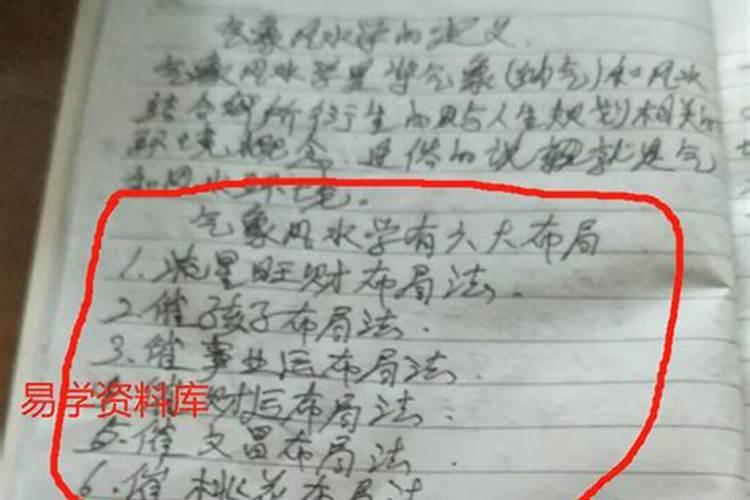 气象风水学的定义
气象风水学是将气象(地气)和风水
结合所衍生的只与人生规划相关的
环境概念.通俗的说就是气
和风水环境.
气象风水学有六大布局
1.流星旺财布局法.
2.催孩子布局法.
3.催事业运布局法.
财运布局法.
易学资料库
5.催文昌布局法.
6.催桃花布局法